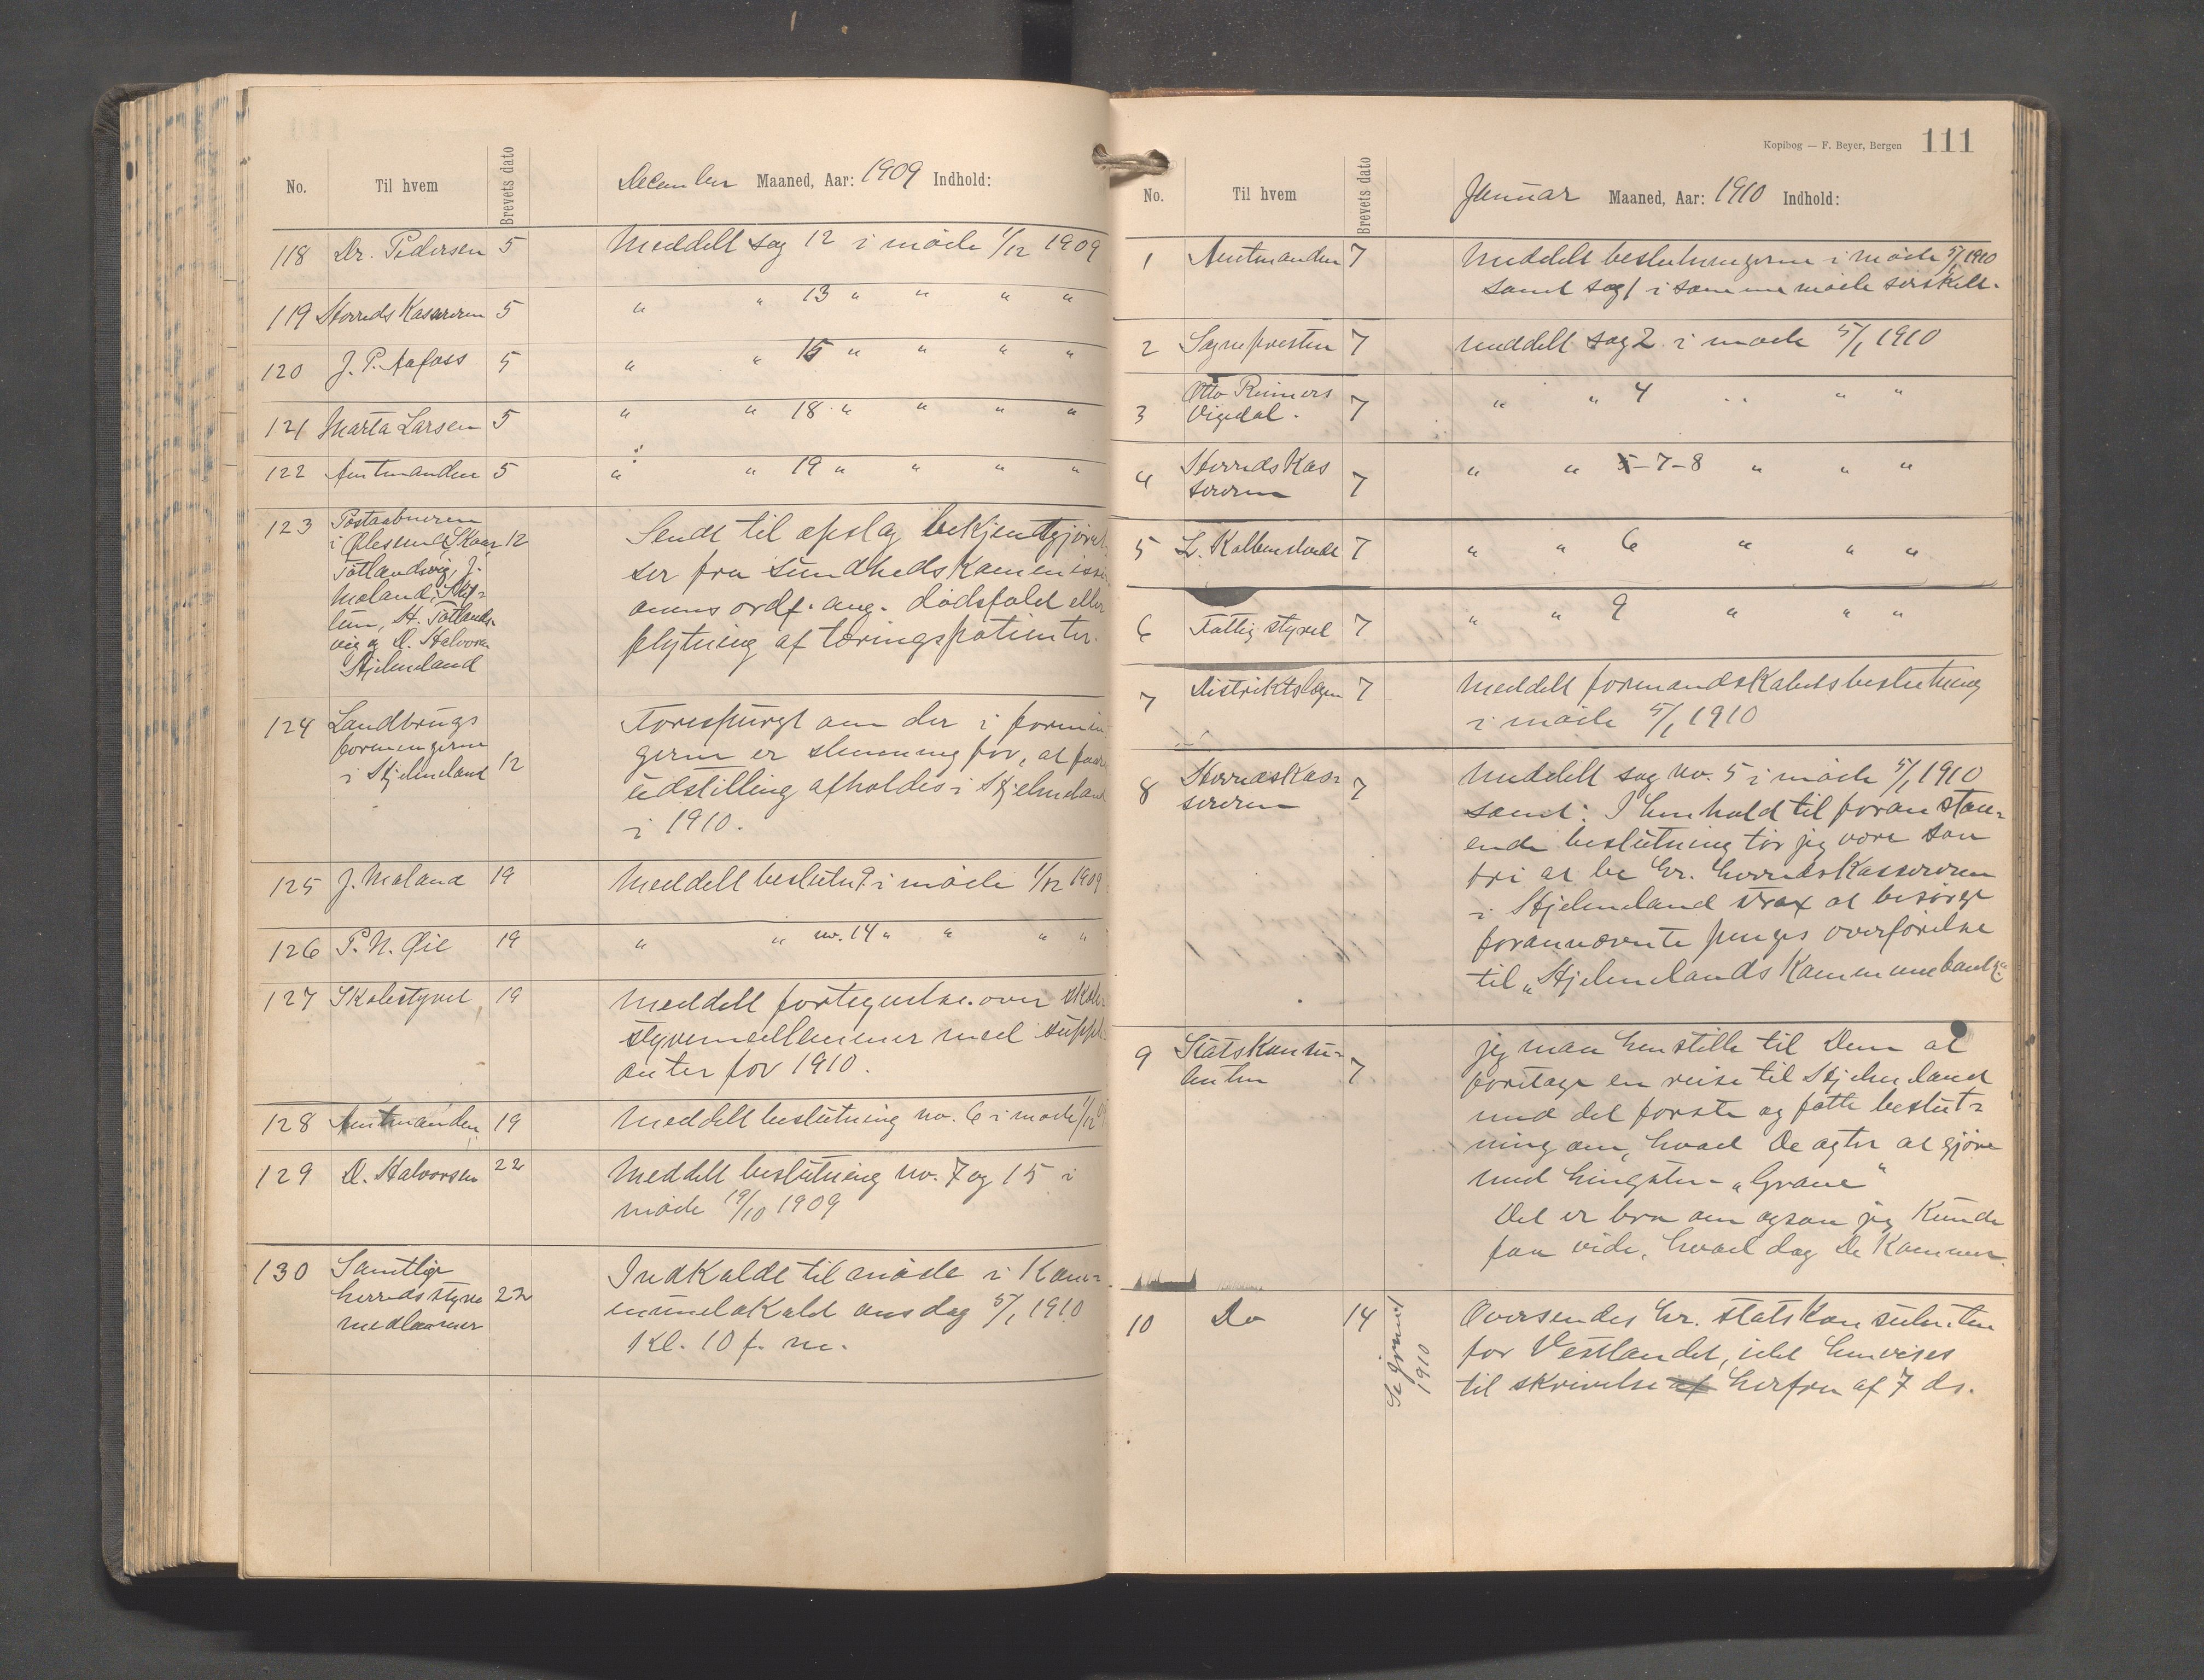 No. Til hvem Brevets dato December Maaned, Aar: 1909 Indhold:
118 Dr. Pedersen 5 Meddelt sag 12 i møde 1/12 1909
119 Herreds Kasereren 5 " " 13 " " " "
120 J. P. Aafoss 5 " " 15 " " " "
121 Marta Larsen 5 " " 18 " " " "
122 Amtmanden 5 " " 19 " " " "
123 Postaabneren
i Øllesund, Skaar 12
Tøtlandsvig, J.
Møland,
lun, H. Tøtlands-
vig og D. Halvorsen
Hjelmeland
Sendt til opslag bekjendtgjørel
ser fra Sundhedskommissi
onens ordf. ang. dødsfald eller
flytning af tæringspatienter.
124 Landbrugs
foreningerne
i Hjelmeland 12
Forespurgt om der i forenin
gerne er stemning for, at faare
udstilling afholdes i Hjelmeland
i 1910.
125 J. Møland 19 Meddelt beslutn. 9 i møde 1/12 1909
126 P. N. Øie 19 " " no. 14 " " " "
127 Skolestyret 19 Meddelt fortegnelse over skole
styremedlemmer med suppl
anter for 1910.
128 Amtmanden 19 Meddelt beslutning no. 6 i møde 1/12
129 D. Halvorsen 22 Meddelt beslutning no. 7 og 15 i
møde 19/10 1909
130 Samtlige
herredsstyre 22
medlemmer
Indkaldt til møde i Kom-
munelokalet onsdag 5/1 1910
Kl. 10 f. m.
Kopibog — F. Beyer, Bergen 111
No. Til hvem Brevets dato Januar Maaned, Aar: 1910 Indhold:
1 Amtmanden 7 Meddelt beslutningerne i møde 5/1 1910
samt sag 1 i samme møde særskilt.
2 Sognepresten 7 Meddelt sag 2 i møde 5/1 1910
3 Otto Reimers
Vigedal. 7 " " 4 " " "
4 Herreds Kas
sereren 7 " " 5-7-8 " " "
5 L. Kolbenstvedt 7 " " 6 " " "
6 Fattigstyret 7 " " 9 " " "
7 Distriktslægen 7 Meddelt formandskabets beslutning
i møde 5/1 1910
8 Herredskas-
sereren 7
Meddelt sag no. 5 i møde 5/1 1910
samt: I henhold til foranstaa-
ende beslutning tør jeg være saa
fri at be hr. herredskassereren
i Hjelmeland strax at besørge
forannævnte penges overførelse
til „Hjelmelands Kommunebank“
9 Statskonsu-
lenten 7
jeg maa henstille til Dem at
foretage en reise til Hjelmeland
med det første og fatte beslut-
ning om, hvad De agter at gjøre
med hingsten - „Grane“
Det er bra om ogsaa jeg kunde
faa vide, hvad dag De kommer.
10 Do 14 Se journal
1910
Oversendes hr. statskonsulenten
for Vestlandet, idet henvises
til skrivelse af herfra af 7 ds.